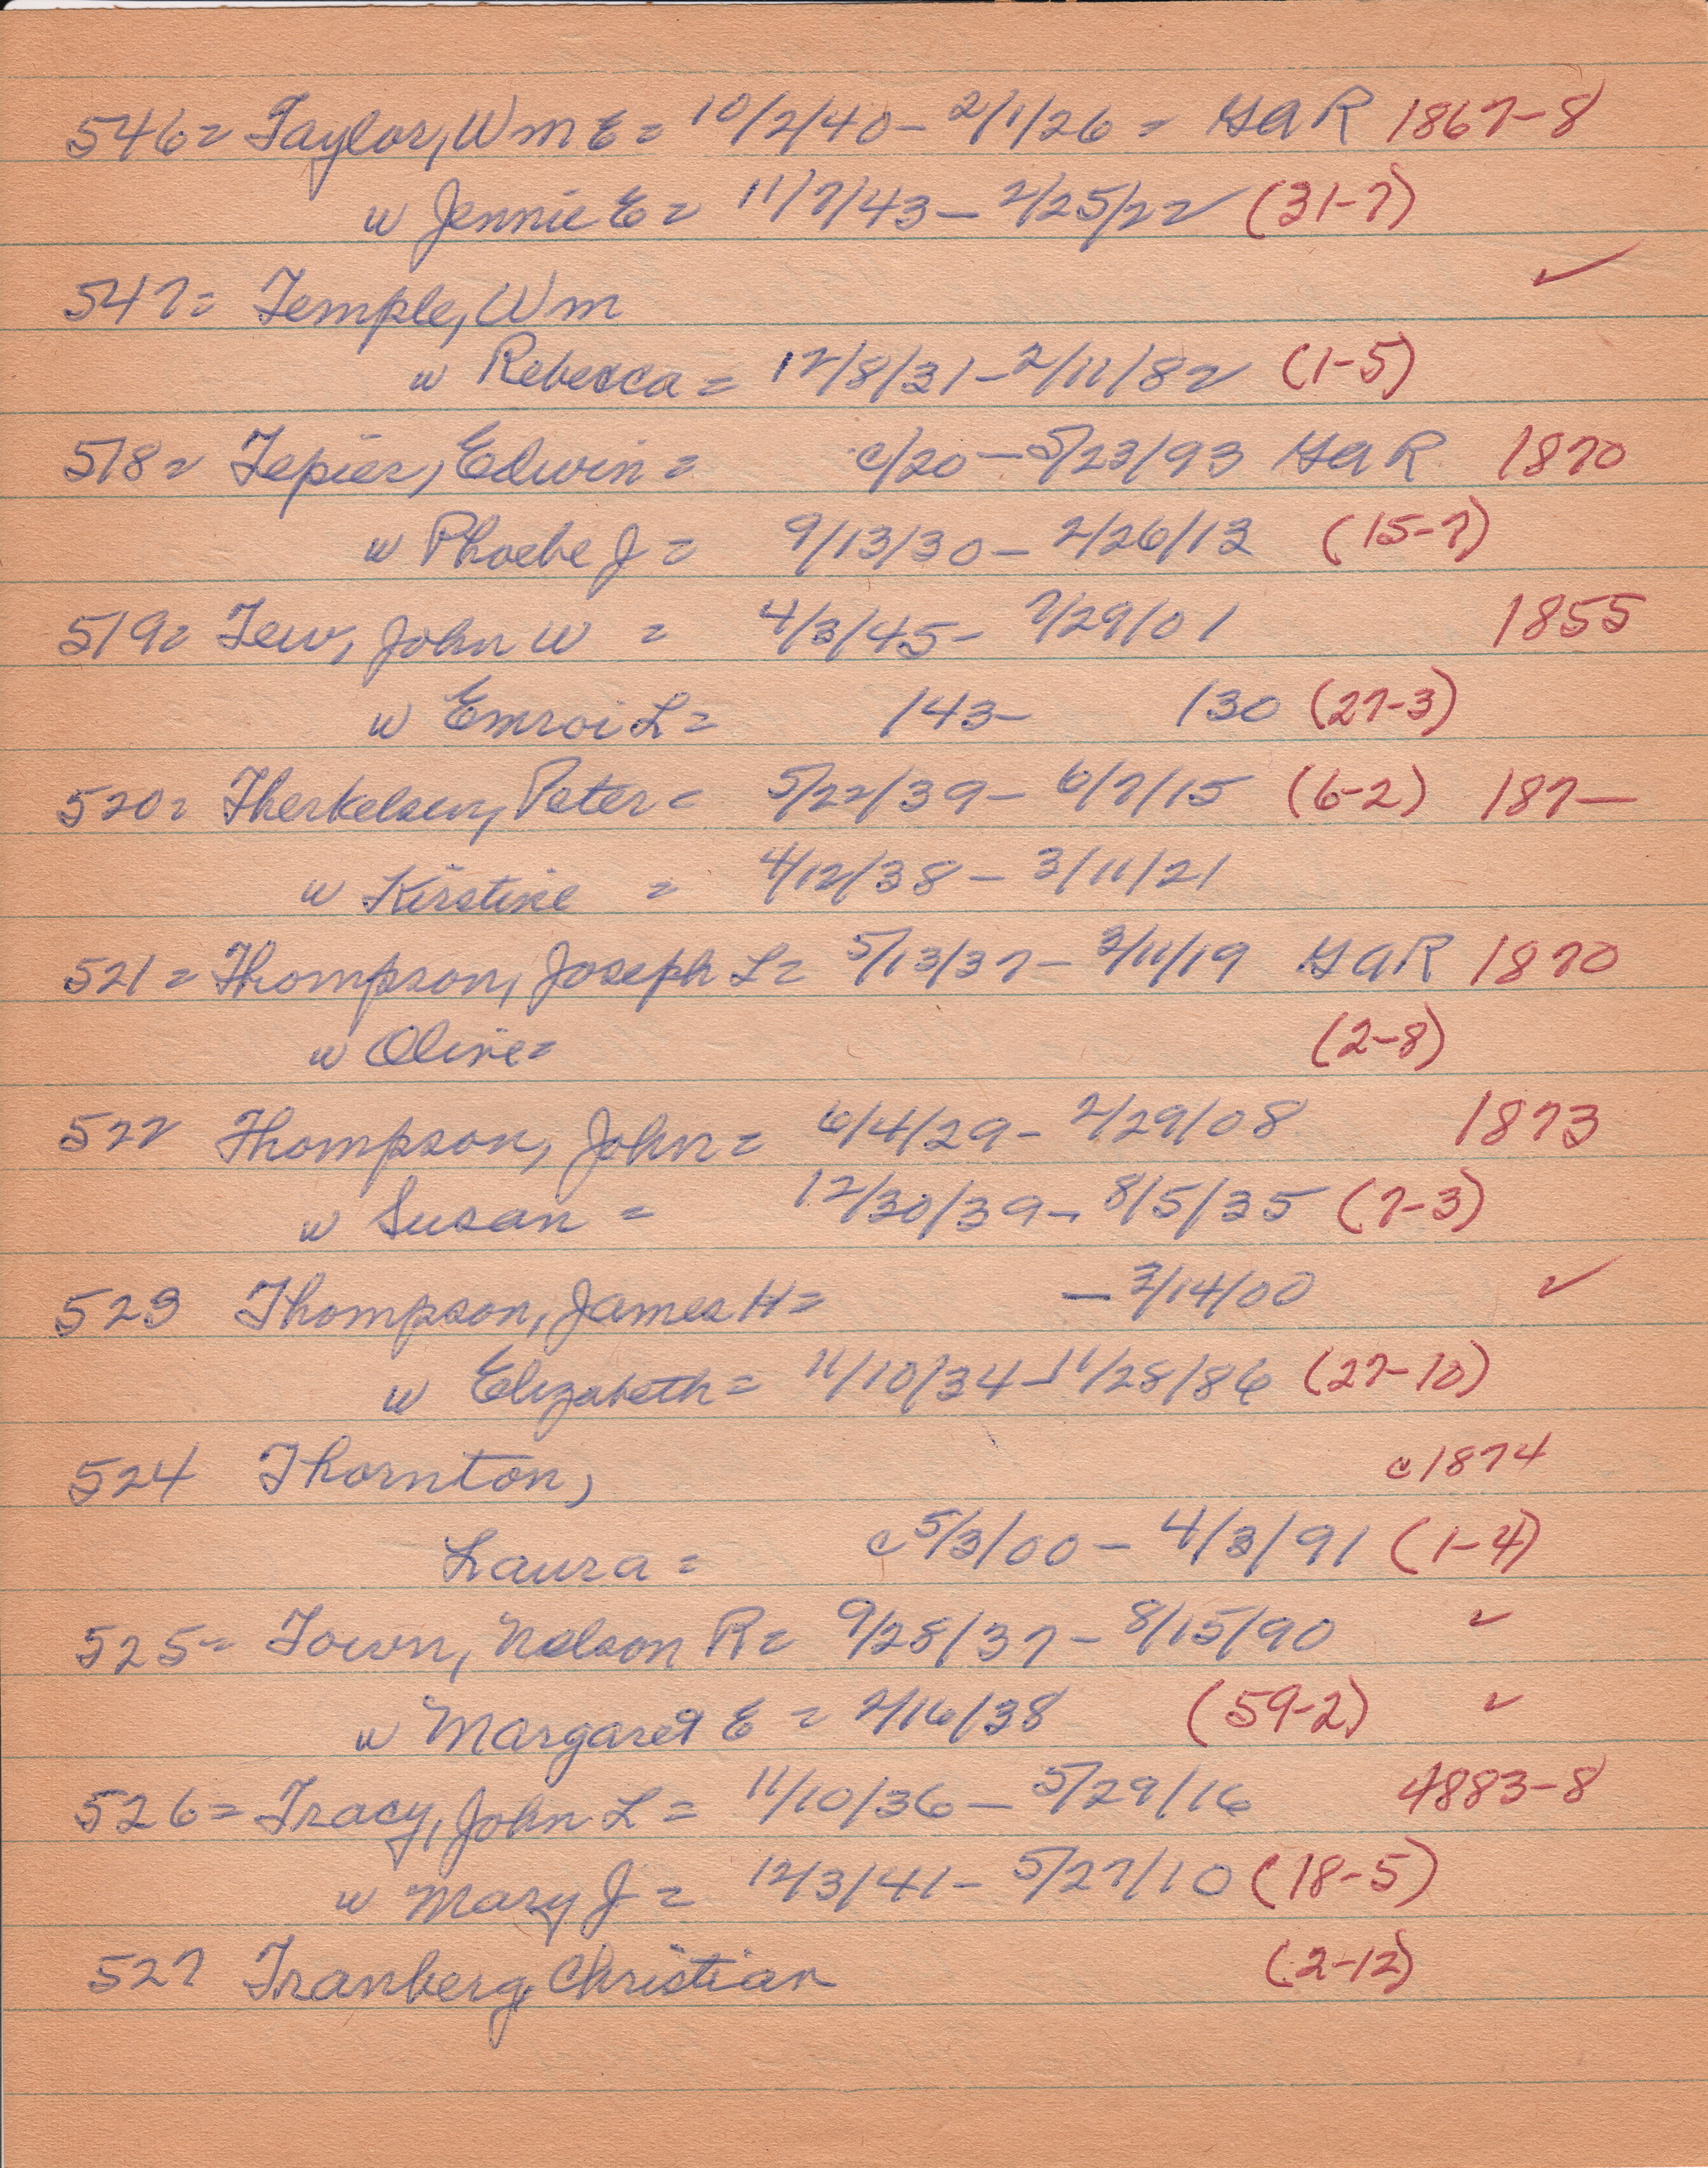 546= Taylor, Wm E = 10/2/40 - 2/1/26 = GAR 1867-8
w Jennie E = 11/7/43 - 2/25/22 (31-7)
547= Temple, Wm ✓
w Rebecca = 12/8/31 - 2/11/82 (1-5)
518= Tepier, Edwin = c/20 - 5/23/93 GAR 1870
w Phoebe J = 9/13/30 - 2/26/13 (15-7)
519= Tew, John W = 4/3/45 - 7/29/01 1855
w Emroi L = /43 - /30 (27-3)
520= Therkelsen, Peter = 5/22/39 - 6/7/15 (6-2) 187—
w Kirstine = 4/12/38 - 3/11/21
521= Thompson, Joseph L = 5/13/37 - 3/11/19 GAR 1870
w Olive = (2-8)
522 Thompson, John = 6/4/29 - 2/29/08 1873
w Susan = 12/30/39 - 8/5/35 (7-3)
523 Thompson, James H = - 3/14/00 ✓
w Elizabeth = 11/10/34 - 11/28/86 (27-10)
524 Thornton, c1874
Laura = c 5/3/00 - 4/3/91 (1-4)
525= Town, Nelson R = 9/28/37 - 8/15/90 ✓
w Margaret E = 2/16/38 (59-2) ✓
526= Tracy, John L = 11/10/36 - 5/29/16 4883-8
w Mary J = 12/3/41 - 5/27/10 (18-5)
527 Tranberg, Christian (2-12)